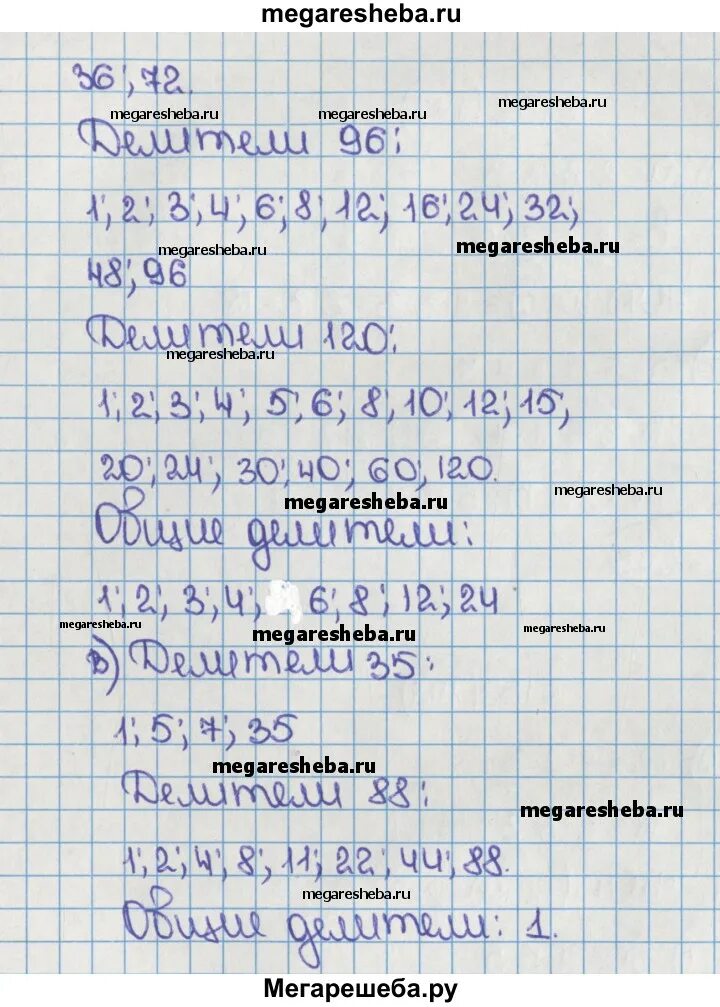 megaresheba.ru
36; 72.
megaresheba.ru
megaresheba.ru
megaresheba.ru
Делители 96:
1; 2; 3; 4; 6; 8; 12; 16; 24; 32;
megaresheba.ru
megaresheba.ru
48; 96
Делители 120:
megaresheba.ru
1; 2; 3; 4; 5; 6; 8; 10; 12; 15;
20; 24; 30; 40; 60; 120.
megaresheba.ru
megaresheba.ru
Общие делители:
1; 2; 3; 4; 6; 8; 12; 24
megaresheba.ru
megaresheba.ru
megaresheba.ru
в) Делители 35:
1; 5; 7; 35
megaresheba.ru
Делители 88:
megaresheba.ru
1; 2; 4; 8; 11; 22; 44; 88.
megaresheba.ru
Общие делители: 1.
Мегарешеба.ру